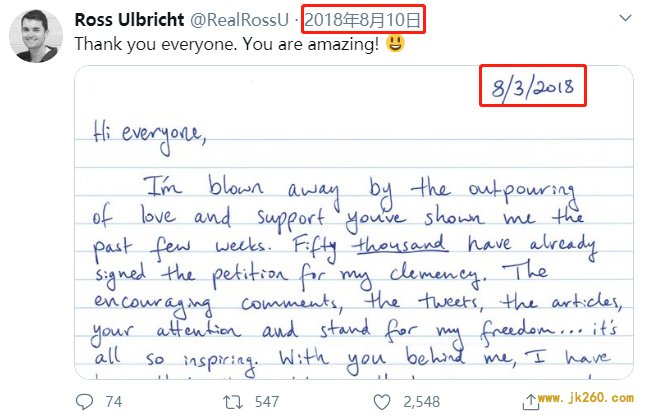 Ross Ulbricht @RealRossU · 2018年8月10日
Thank you everyone. You are amazing! 😃
8/3/2018
Hi everyone,
I'm blown away by the outpouring
of love and support you've shown me the
past few weeks. Fifty thousand have already
signed the petition for my clemency. The
encouraging comments, the tweets, the articles,
your attention and stand for my freedom... it's
all so inspiring. With you behind me, I have
74 547 2,548
www.jk260.com